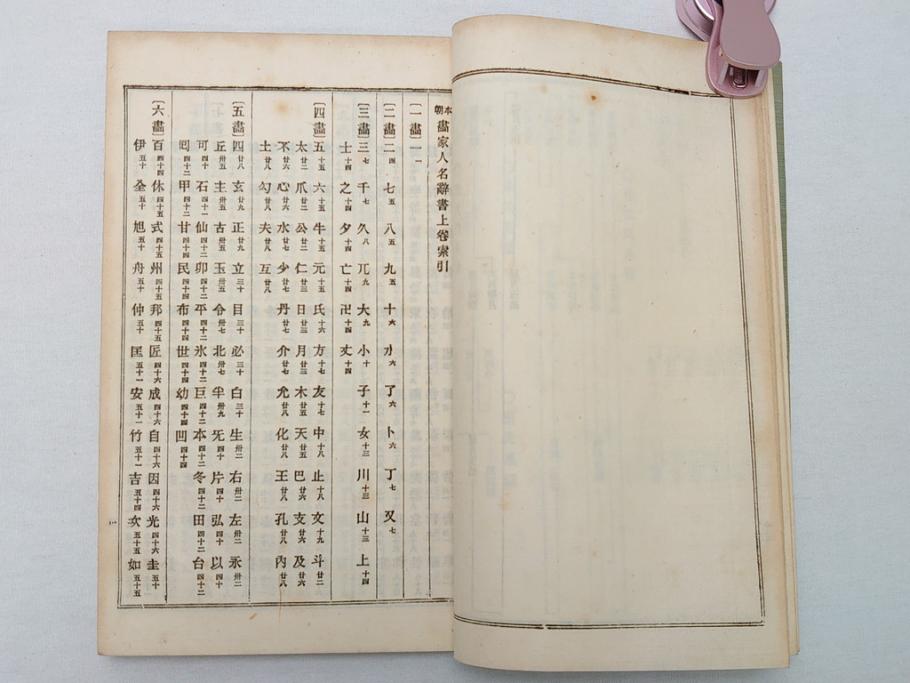 本朝畵家人名辭書上卷索引
〔一畵〕一一
〔二畵〕二四 七五 八五 九五 十六 六 了六 卜六 丁七 又七
〔三畵〕三七 千七 久八 兀九 大九 小十 子十一 女十三 川十三 山十三 上十四
士十四 之十四 夕十四 亡十四 卍十四 丈十四
〔四畵〕五十五 六十五 牛十五 元十五 氏十六 方十七 友十七 中十八 止十八 文十九 斗廿二
太廿二 爪廿二 公廿二 仁廿三 日廿三 月廿三 木廿五 天廿五 巴廿六 支廿六 及廿六
不廿六 心廿六 水廿七 少廿七 丹廿七 介廿七 允廿八 化廿八 王廿八 孔廿八 內廿八
土廿八 勾廿八 夫廿八 互廿八
〔五畵〕四廿八 玄廿九 正廿九 立三十 目三十 必三十 白三十 生卅二 右卅二 左卅二 永卅二
丘卅五 主卅五 古卅五 玉卅五 令卅七 北卅七 半卅九 旡四十 片四十 弘四十 以四十
可四十 石四十一 仙四十二 卯四十二 平四十二 氷四十二 巨四十二 本四十二 冬四十二 田四十二 台四十二
四十二 甲四十二 甘四十四 民四十四 布四十四 世四十四 幼四十四 凹四十四
〔六畵〕百四十四 休四十五 式四十五 州四十五 邦四十五 匠四十六 成四十六 自四十六 因四十六 光四十六 圭五十
伊五十 全五十 旭五十 舟五十 仲五十 匡五十一 安五十一 竹五十一 吉五十四 次五十五 如五十五
一